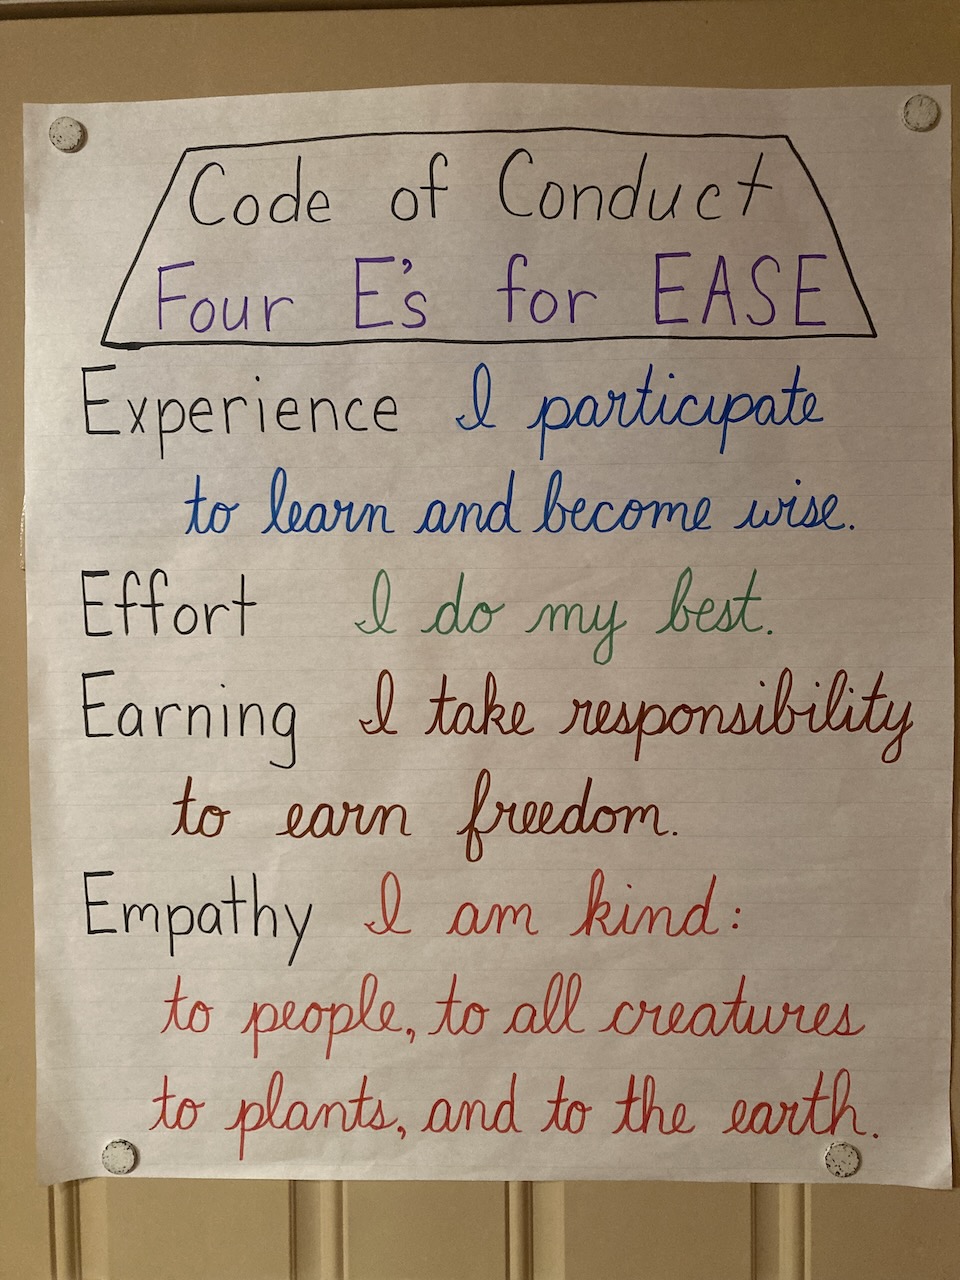 Code of Conduct
Four E's for EASE
Experience I participate
to learn and become wise.
Effort I do my best.
Earning I take responsibility
to earn freedom.
Empathy I am kind:
to people, to all creatures
to plants, and to the earth.